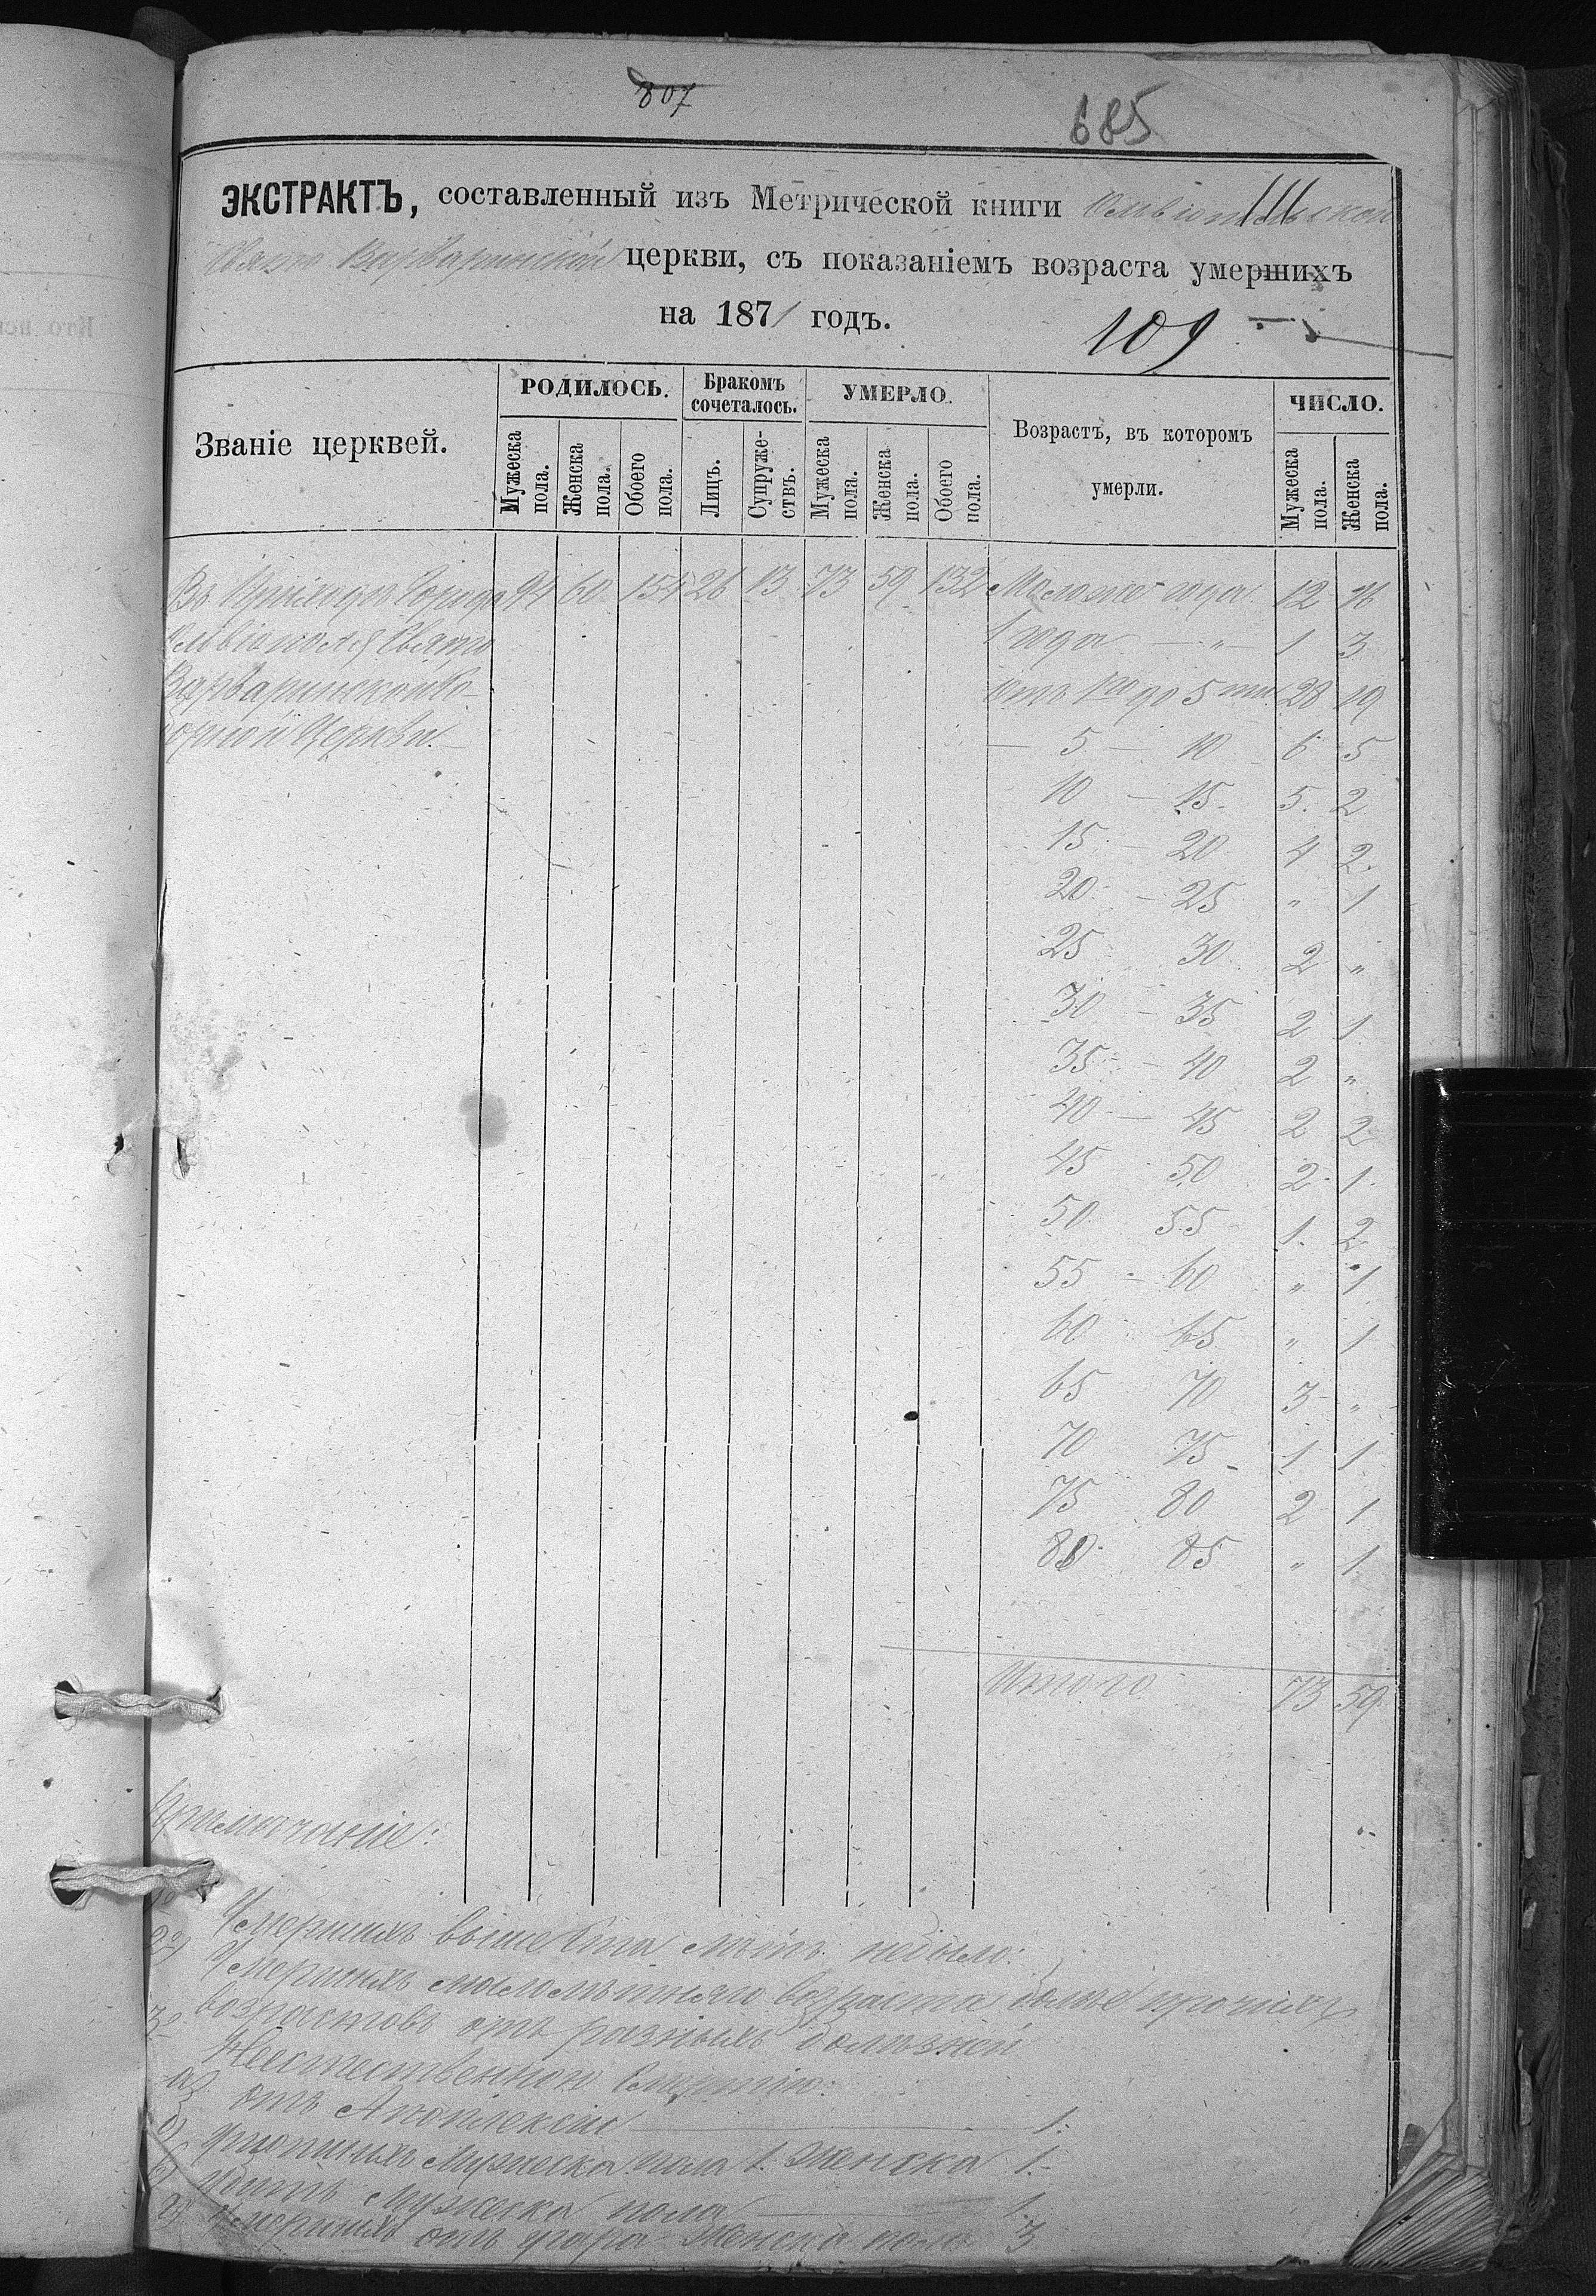 807
685
ЭКСТРАКТЪ, составленный изъ Метрической книги Ольвіопольской
Свято Варваринской церкви, съ показаніемъ возраста умершихъ
на 1871 годъ.
109
Званіе церквей.
РОДИЛОСЬ.
Бракомъ сочеталось.
УМЕРЛО.
Возрастъ, въ которомъ умерли.
ЧИСЛО.
Мужеска пола.
Женска пола.
Обоего пола.
Лицъ.
Супружествъ.
Мужеска пола.
Женска пола.
Обоего пола.
Мужеска пола.
Женска пола.
Въ Приходѣ Города 94 60 154 26 13 73 59 132 Моложе года 12 16
Ольвіополя Свято 1 года " 1 3
Варваринской Со- отъ 1го до 5ти 28 19
борной Церкви. — 5 — 10 6 5
10 — 15 5 2
15 — 20 4 2
20 — 25 " 1
25 30 2 "
30 — 35 2 1
35 — 40 2 "
40 — 45 2 2
45 50 2 1
50 55 1 2
55 - 60 " 1
60 65 " 1
65 70 3 "
70 75 1 1
75 80 2 1
80 85 " 1
Итого 73 59
Примѣчаніе:
Умершихъ выше ста лѣтъ небыло:
2) Умершихъ малолѣтняго возраста болѣе прочихъ
возрастовъ отъ разныхъ болѣзней
3) Неестественною Смертію:
а) отъ Апоплексіи — 1:
б) утопшихъ Мужеска пола 1. Женска 1.-
в) убитъ Мужеска пола — 1.
г) Умершихъ отъ угара Женска пола 3